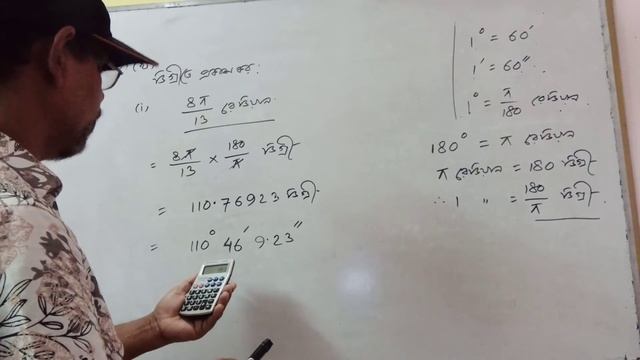 ডিগ্রীতে প্রকাশ কর:
(i) 8π/13 রেডিয়ান
= 8π/13 × 180/π ডিগ্রী
= 110.76923 ডিগ্রী.
= 110° 46′ 9.23″
1° = 60′
1′ = 60″
1° = π/180 রেডিয়ান.
180° = π রেডিয়ান
π রেডিয়ান = 180 ডিগ্রী
∴ 1 " = 180/π ডিগ্রী.